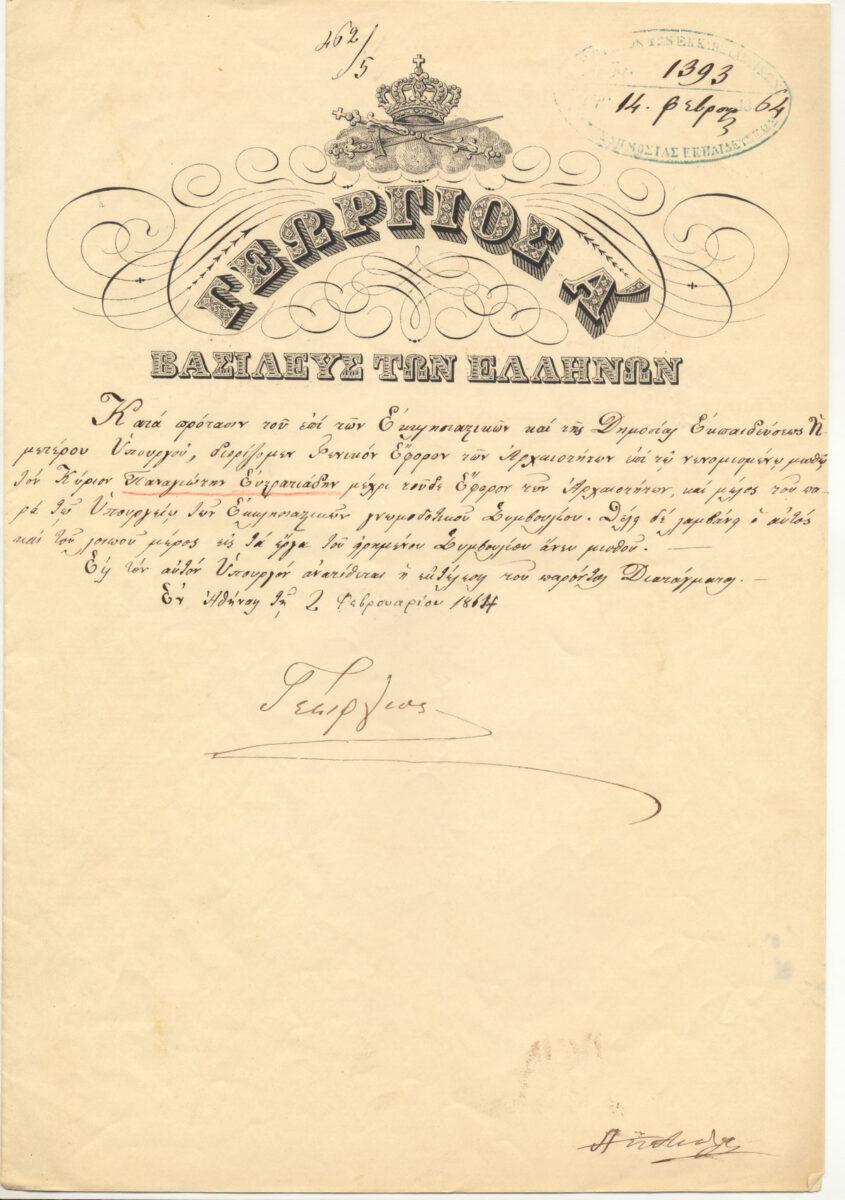 462/5
1393
14. φεβρ 64
ΔΗΜΟΣΙΑΣ ΕΚΠΑΙΔΕΥΣΕΩΣ
ΓΕΩΡΓΙΟΣ Α'
ΒΑΣΙΛΕΥΣ ΤΩΝ ΕΛΛΗΝΩΝ
Κατά πρότασιν τοῦ ἐπί τῶν Ἐκκλησιαστικῶν καί τῆς Δημοσίας Ἐκπαιδεύσεως Ἡ
μετέρου Ὑπουργοῦ, διορίζομεν Γενικόν Ἔφορον τῶν Ἀρχαιοτήτων ἐπί τῷ νενομισμένῳ μισθῷ
τόν Κύριον Παναγιώτην Εὐστρατιάδην μεχρι τοῦδε Ἔφορον τῶν Ἀρχαιοτήτων, καί μέλος του πα
ρά τῷ Ὑπουργείῳ τῶν Ἐκκλησιαστικῶν γνωμοδοτικοῦ Συμβουλίου. δέ λαμβάνῃ ὁ αὐτός
καί τοῦ λοιποῦ μέρος εἰς τά ἔργα τοῦ εἰρημένου Συμβουλίου ἄνευ μισθοῦ. —
Εἰς τόν αὐτόν Ὑπουργόν ἀνατίθεται ἡ ἐκτέλεσις τοῦ παρόντος Διατάγματος. —
Ἐν Ἀθήναις τῇ 2 Φεβρουαρίου 1864
Γεώργιος